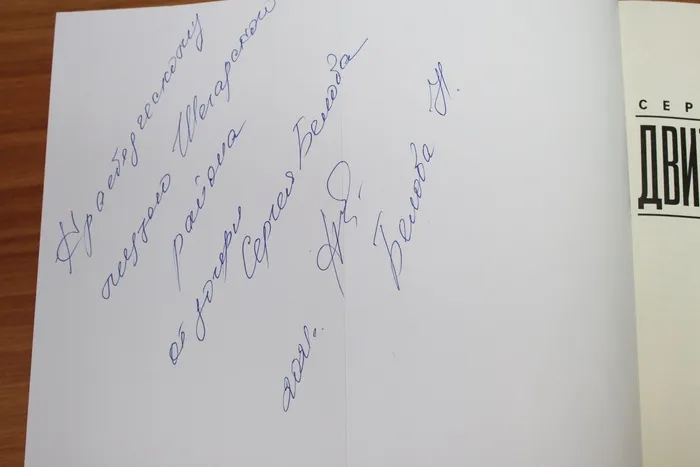 Краеведческому
музею Шегарского
района
от дочери
Сергея Белова
2021г.
Белова Н.
СЕР
ДВИ